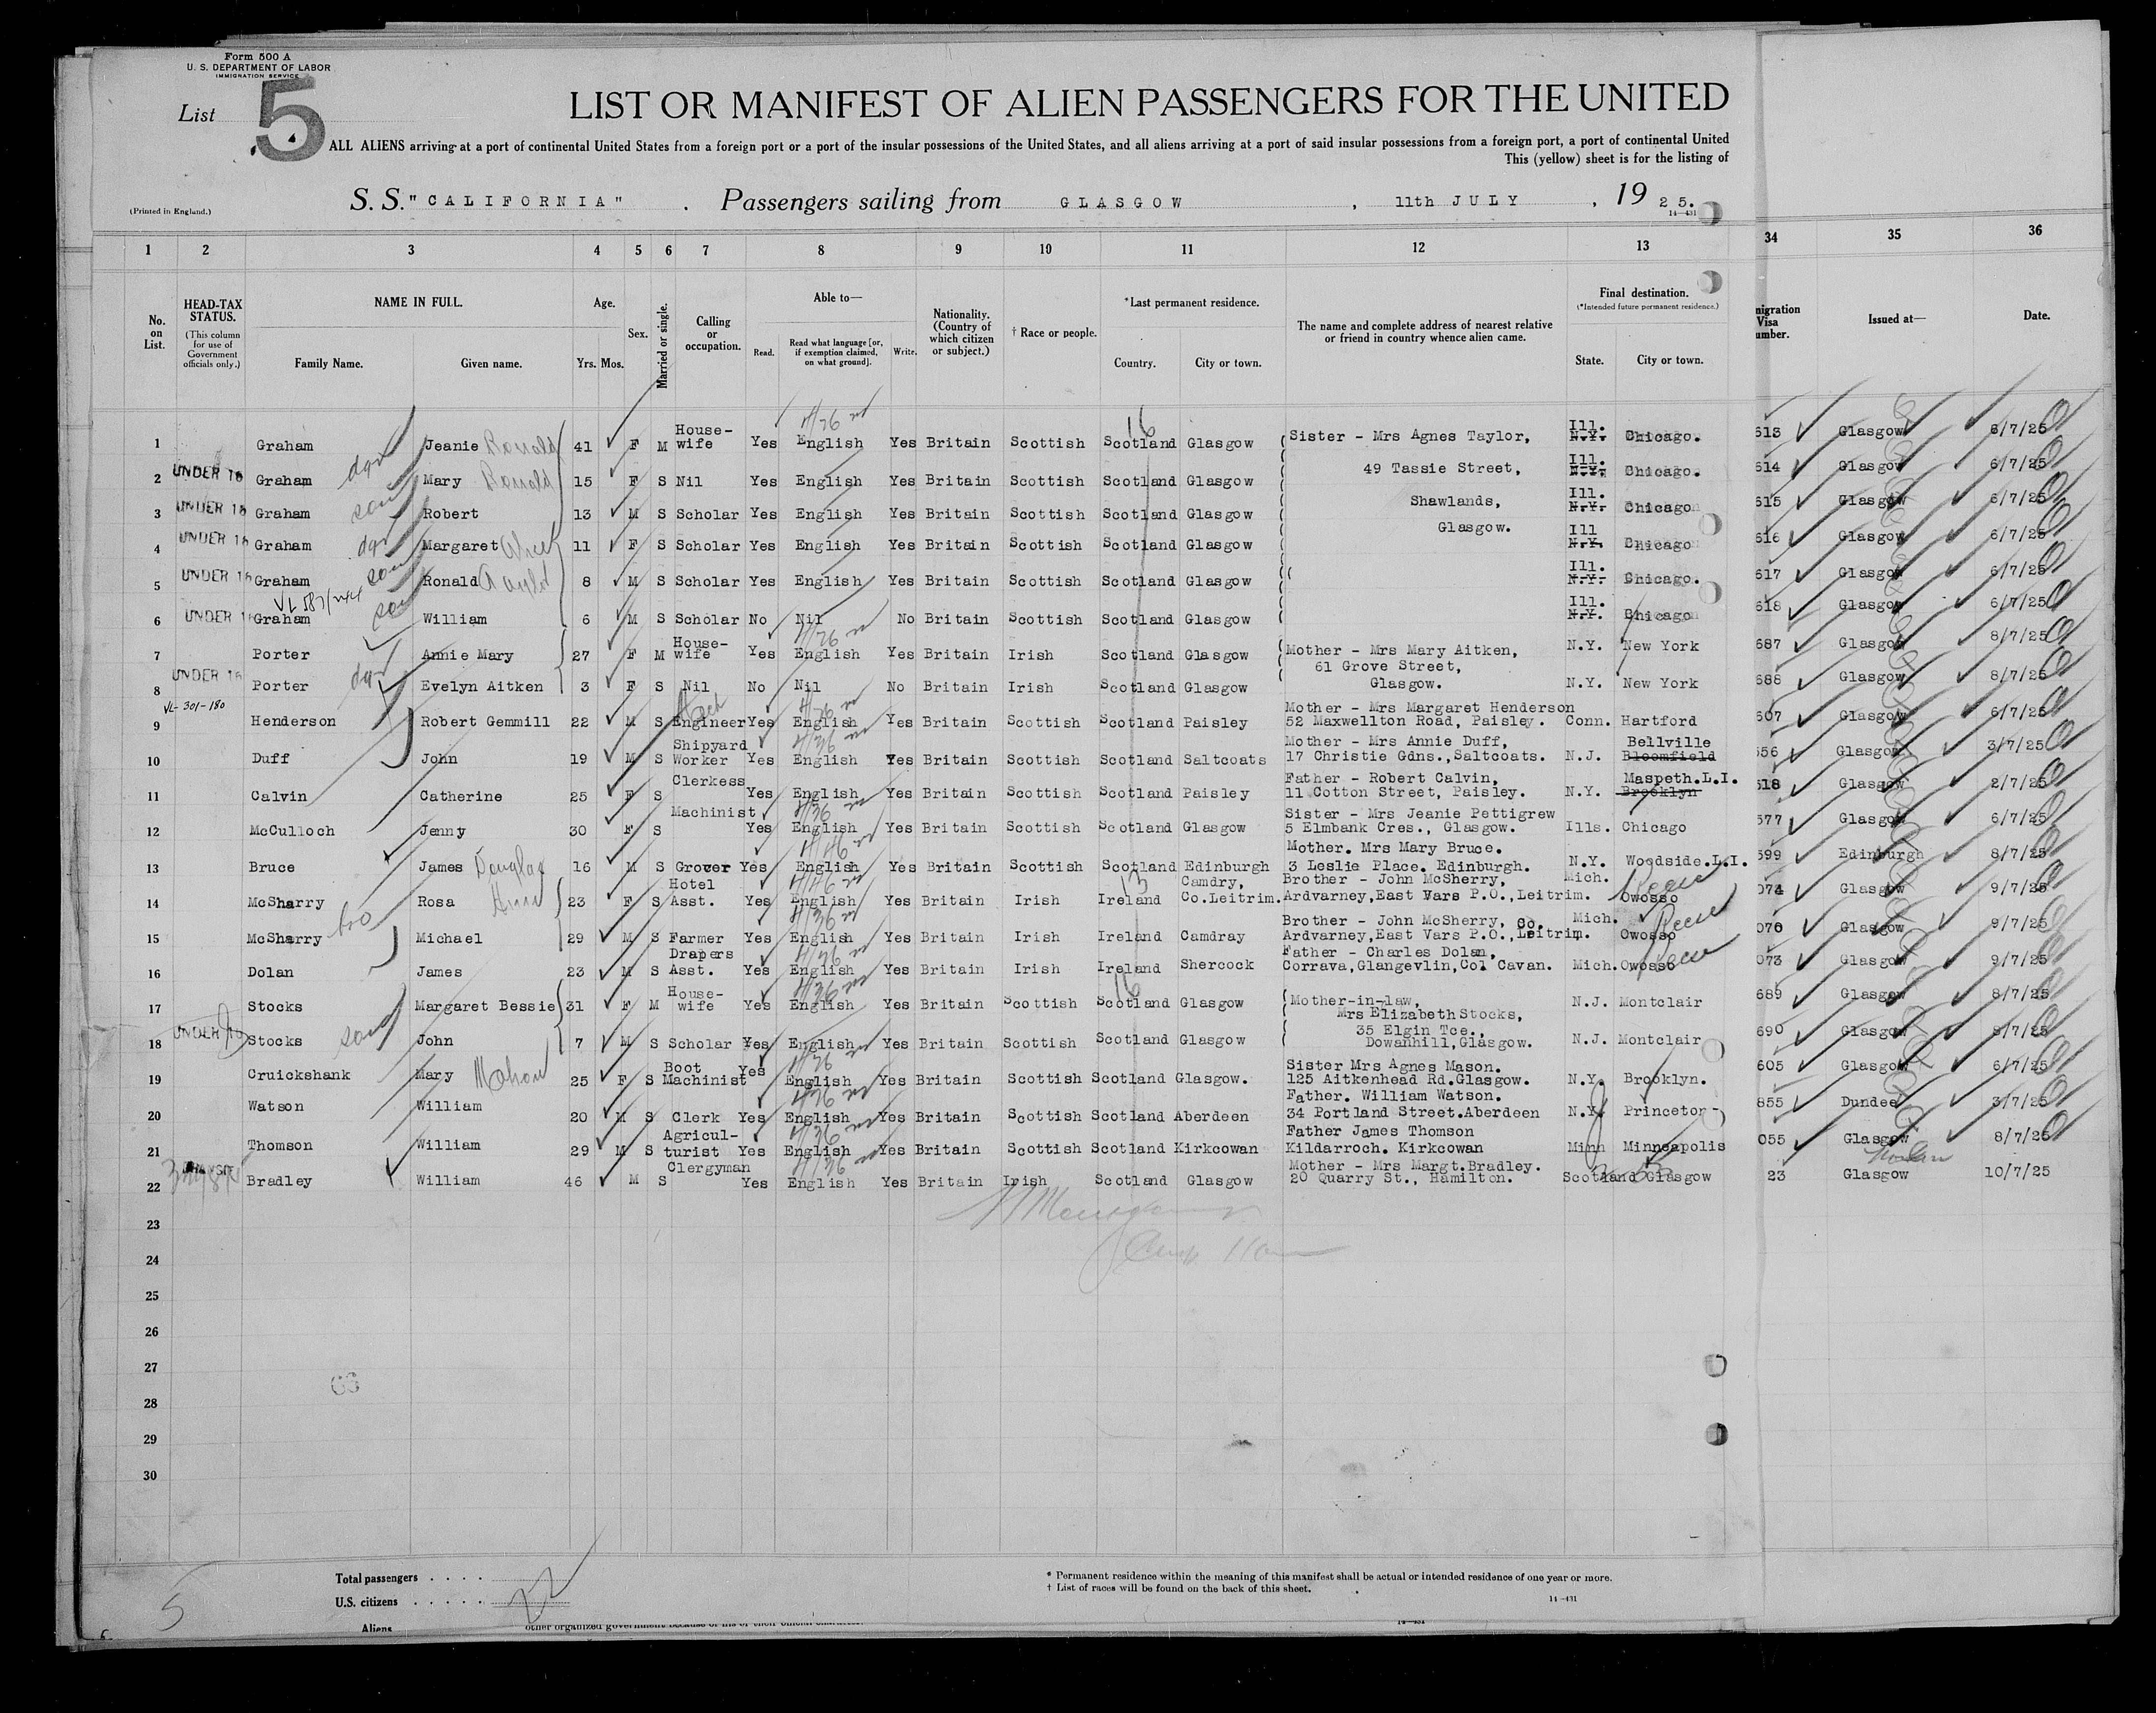 Form 500 A
U. S. DEPARTMENT OF LABOR
IMMIGRATION SERVICE
List 5
LIST OR MANIFEST OF ALIEN PASSENGERS FOR THE UNITED
ALL ALIENS arriving at a port of continental United States from a foreign port or a port of the insular possessions of the United States, and all aliens arriving at a port of said insular possessions from a foreign port, a port of continental United
This (yellow) sheet is for the listing of
(Printed in England.)
S. S. "CALIFORNIA" . Passengers sailing from GLASGOW , 11th JULY , 19 25.
14—431
1 2 3 4 5 6 7 8 9 10 11 12 13 34 35 36
No. on List.
HEAD-TAX STATUS.
(This column for use of Government officials only.)
NAME IN FULL.
Family Name. Given name.
Age.
Yrs. Mos.
Sex.
Married or single.
Calling or occupation.
Able to—
Read. Read what language [or, if exemption claimed, on what ground]. Write.
Nationality. (Country of which citizen or subject.)
† Race or people.
*Last permanent residence.
Country. City or town.
The name and complete address of nearest relative or friend in country whence alien came.
Final destination.
(*Intended future permanent residence.)
State. City or town.
migration Visa umber.
Issued at—
Date.
1 Graham Jeanie Ronald 41 F M House-wife Yes English Yes Britain Scottish Scotland Glasgow Sister - Mrs Agnes Taylor, Ill. N.Y. Chicago. 613 Glasgow 6/7/25
2 UNDER 16 Graham dgr Mary Ronald 15 F S Nil Yes English Yes Britain Scottish Scotland Glasgow 49 Tassie Street, Ill. N.Y. Chicago. 614 Glasgow 6/7/25
3 UNDER 16 Graham son Robert 13 M S Scholar Yes English Yes Britain Scottish Scotland Glasgow Shawlands, Ill. N.Y. Chicago 615 Glasgow 6/7/25
4 UNDER 16 Graham dgr Margaret 11 F S Scholar Yes English Yes Britain Scottish Scotland Glasgow Glasgow. Ill N.Y. Chicago 616 Glasgow 6/7/25
5 UNDER 16 Graham son Ronald 8 M S Scholar Yes English Yes Britain Scottish Scotland Glasgow Ill. N.Y. Chicago. 617 Glasgow 6/7/25
6 UNDER 16 Graham son William 6 M S Scholar No Nil No Britain Scottish Scotland Glasgow Ill. N.Y. Chicago 618 Glasgow 6/7/25
7 Porter Annie Mary 27 F M House-wife Yes English Yes Britain Irish Scotland Glasgow Mother - Mrs Mary Aitken, 61 Grove Street, N.Y. New York 687 Glasgow 8/7/25
8 UNDER 16 Porter dgr Evelyn Aitken 3 F S Nil No Nil No Britain Irish Scotland Glasgow Glasgow. N.Y. New York 688 Glasgow 8/7/25
VL-301-180
9 Henderson Robert Gemmill 22 M S Engineer Yes English Yes Britain Scottish Scotland Paisley Mother - Mrs Margaret Henderson 52 Maxwellton Road, Paisley. Conn. Hartford 607 Glasgow 6/7/25
10 Duff John 19 M S Shipyard Worker Yes English Yes Britain Scottish Scotland Saltcoats Mother - Mrs Annie Duff, 17 Christie Gdns.,Saltcoats. N.J. Bellville Bloomfield 556 Glasgow 3/7/25
11 Calvin Catherine 25 F S Clerkess Yes English Yes Britain Scottish Scotland Paisley Father - Robert Calvin, 11 Cotton Street, Paisley. N.Y. Maspeth.L.I. Brooklyn 518 Glasgow 2/7/25
12 McCulloch Jenny 30 F S Machinist Yes English Yes Britain Scottish Scotland Glasgow Sister - Mrs Jeanie Pettigrew 5 Elmbank Cres., Glasgow. Ills. Chicago 577 Glasgow 6/7/25
13 Bruce James Douglas 16 M S Grover Yes English Yes Britain Scottish Scotland Edinburgh Mother. Mrs Mary Bruce. 3 Leslie Place. Edinburgh. N.Y. Woodside.L.I. 599 Edinburgh 8/7/25
14 McSharry Rosa Ann 23 F S Hotel Asst. Yes English Yes Britain Irish Ireland Camdry, Co.Leitrim. Brother - John McSherry, Ardvarney,East Vars P.O.,Leitrim. Mich. Owosso 074 Glasgow 9/7/25
15 McSharry bro Michael 29 M S Farmer Yes English Yes Britain Irish Ireland Camdray Brother - John McSherry, Co. Ardvarney,East Vars P.O.,Leitrim. Mich. Owosso 070 Glasgow 9/7/25
16 Dolan James 23 M S Drapers Asst. Yes English Yes Britain Irish Ireland Shercock Father - Charles Dolan, Corrava,Glangevlin,Col Cavan. Mich. Owosso 073 Glasgow 9/7/25
17 Stocks Margaret Bessie 31 F M House-wife Yes English Yes Britain Scottish Scotland Glasgow Mother-in-law, Mrs Elizabeth Stocks, N.J. Montclair 689 Glasgow 8/7/25
18 UNDER 16 Stocks son John 7 M S Scholar Yes English Yes Britain Scottish Scotland Glasgow 35 Elgin Tce., Dowanhill,Glasgow. N.J. Montclair 690 Glasgow 8/7/25
19 Cruickshank Mary 25 F S Boot Machinist Yes English Yes Britain Scottish Scotland Glasgow. Sister Mrs Agnes Mason. 125 Aitkenhead Rd.Glasgow. N.Y. Brooklyn. 605 Glasgow 6/7/25
20 Watson William 20 M S Clerk Yes English Yes Britain Scottish Scotland Aberdeen Father. William Watson. 34 Portland Street.Aberdeen N.Y. Princeton 855 Dundee 3/7/25
21 Thomson William 29 M S Agricul-turist Yes English Yes Britain Scottish Scotland Kirkcowan Father James Thomson Kildarroch. Kirkcowan Minn Minneapolis 055 Glasgow 8/7/25
22 Bradley William 46 M S Clergyman Yes English Yes Britain Irish Scotland Glasgow Mother - Mrs Margt.Bradley. 20 Quarry St., Hamilton. Scotland Glasgow 23 Glasgow 10/7/25
23
24
25
26
27
28
29
30
63
Total passengers . . . .
U.S. citizens . . . . . 22
Aliens
5
* Permanent residence within the meaning of this manifest shall be actual or intended residence of one year or more.
† List of races will be found on the back of this sheet.
14—431